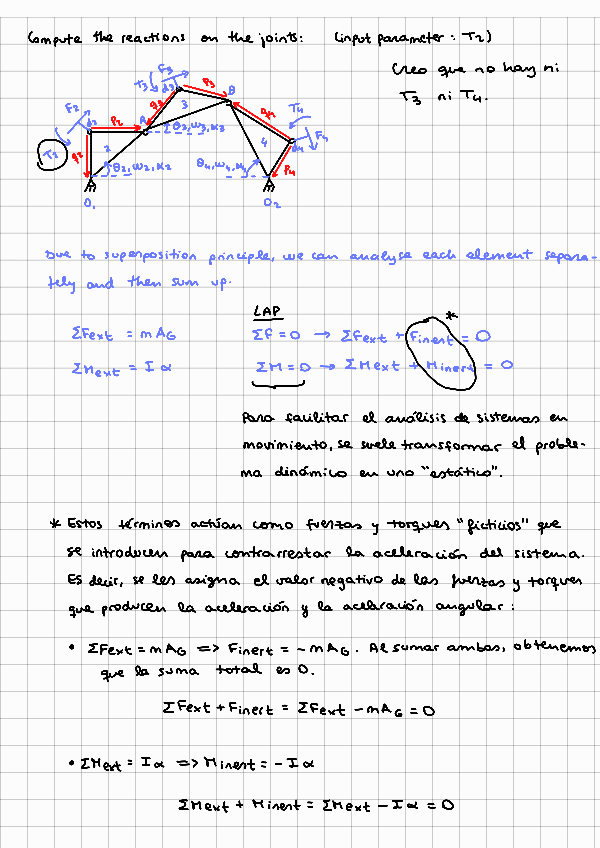 Compute the reactions on the joints: (input parameter: T2)
Creo que no hay ni
T3 ni T4.
F3
T3
d3
P3
B
q3
3
F2
d2
P2
A
θ3, ω3, α3
q4
T4
F4
d4
T2
q2
2
4
θ2, ω2, α2
θ4, ω4, α4
P4
O1
O2
Due to superposition principle, we can analyse each element separa-
tely and then sum up.
LAP
*
ΣFext = mAG
ΣF = 0 → ΣFext + Finert = 0
ΣMext = I α
ΣM = 0 → ΣMext + Minert = 0
Para facilitar el análisis de sistemas en
movimiento, se suele transformar el proble-
ma dinámico en uno "estático".
* Estos términos actúan como fuerzas y torques "ficticios" que
se introducen para contrarrestar la aceleración del sistema.
Es decir, se les asigna el valor negativo de las fuerzas y torques
que producen la aceleración y la aceleración angular:
• ΣFext = mAG => Finert = -mAG. Al sumar ambas, obtenemos
que la suma total es 0.
ΣFext + Finert = ΣFext - mAG = 0
• ΣMext = Iα => Minert = -Iα
ΣMext + Minert = ΣMext - Iα = 0